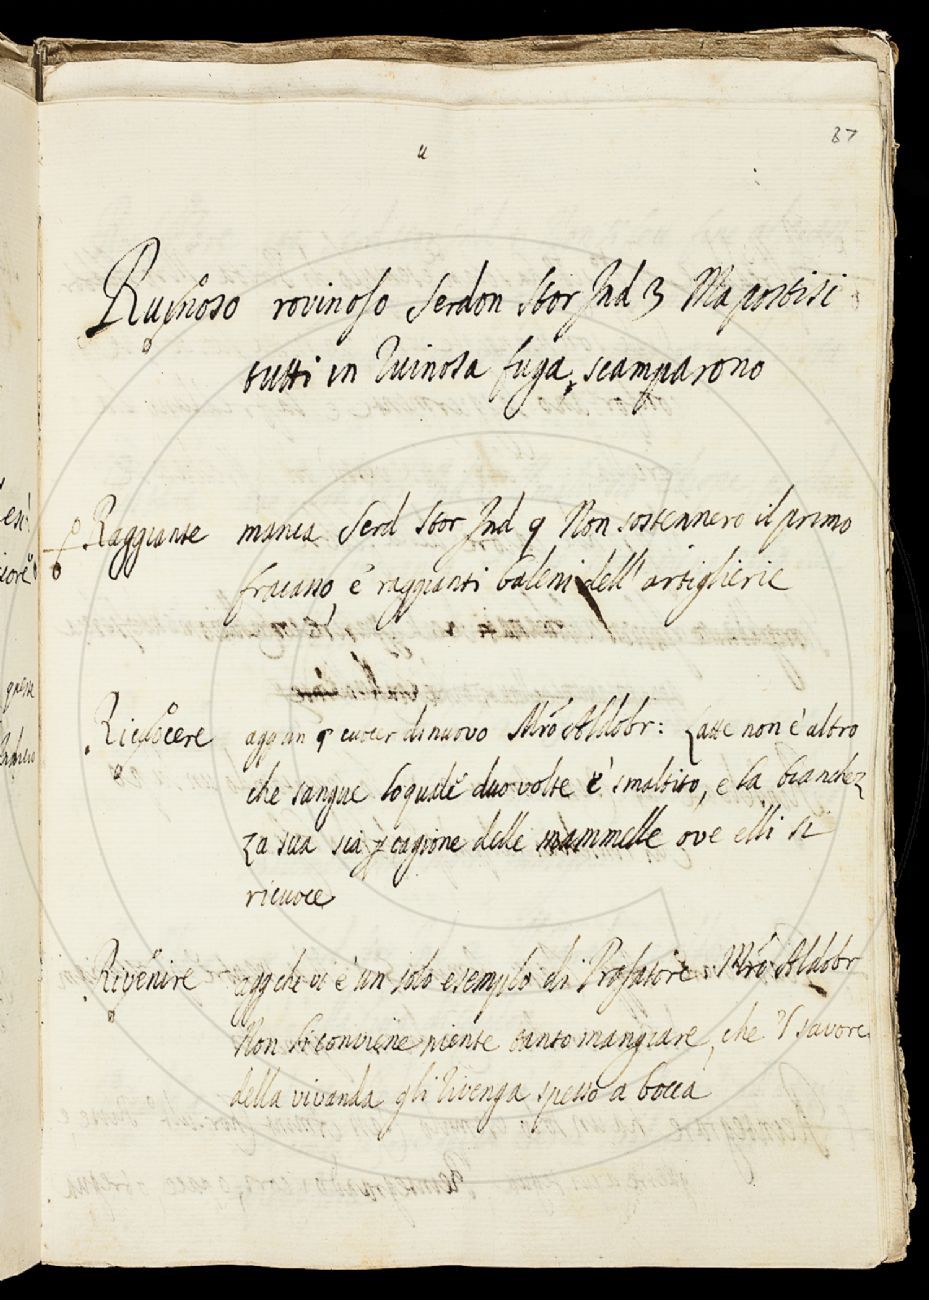 37
u
Ruinoso rovinoso Serdon Stor Ind 3 Ma postisi
tutti in ruinosa fuga, scamparono
Raggiante manca Serd Stor Ind 9 Non sostennero il primo
fracasso, e raggianti baleni dell' artiglierie
Ricuocere agg un p cuocer di nuovo Mro Aldobr: Latte non è altro
che sangue loquale duo volte è smaltito, e la bianchez
za sua sia p cagione delle mammelle ove elli si
ricuoce
Rivenire agg che vi è un solo esempio di Prosatore Mro Aldobr
Non si conviene niente tanto mangiare, che 'l savore
della vivanda gli rivenga spesso a bocca